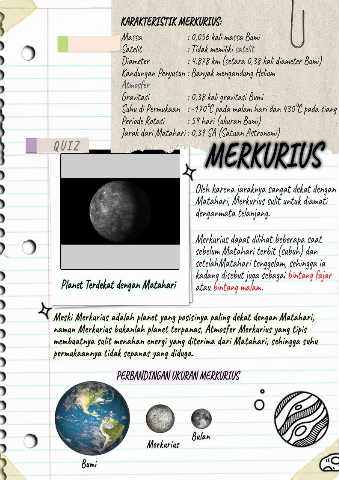 KARAKTERISTIK MERKURIUS:
Massa : 0,056 kali massa Bumi
Satelit : Tidak memiliki satelit
Diameter : 4.878 km (setara 0,38 kali diameter Bumi)
Kandungan Penyusun : Banyak mengandung Helium
Atmosfer
Gravitasi : 0,38 kali gravitasi Bumi
Suhu di Permukaan : -170°C pada malam hari dan 430°C pada siang
Periode Rotasi : 59 hari (ukuran Bumi)
Jarak dari Matahari : 0,39 SA (Satuan Astronomi)
QUIZ
MERKURIUS
Oleh karena jaraknya sangat dekat dengan
Matahari, Merkurius sulit untuk diamati
denganmata telanjang.
Merkurius dapat dilihat beberapa saat
sebelum Matahari terbit (subuh) dan
setelahMatahari tenggelam, sehingga ia
kadang disebut juga sebagai bintang fajar
atau bintang malam.
Planet Terdekat dengan Matahari
Meski Merkurius adalah planet yang posisinya paling dekat dengan Matahari,
namun Merkurius bukanlah planet terpanas, Atmosfer Merkurius yang tipis
membuatnya sulit menahan energi yang diterima dari Matahari, sehingga suhu
permukaannya tidak sepanas yang diduga.
PERBANDINGAN UKURAN MERKURIUS
Bumi
Merkurius
Bulan